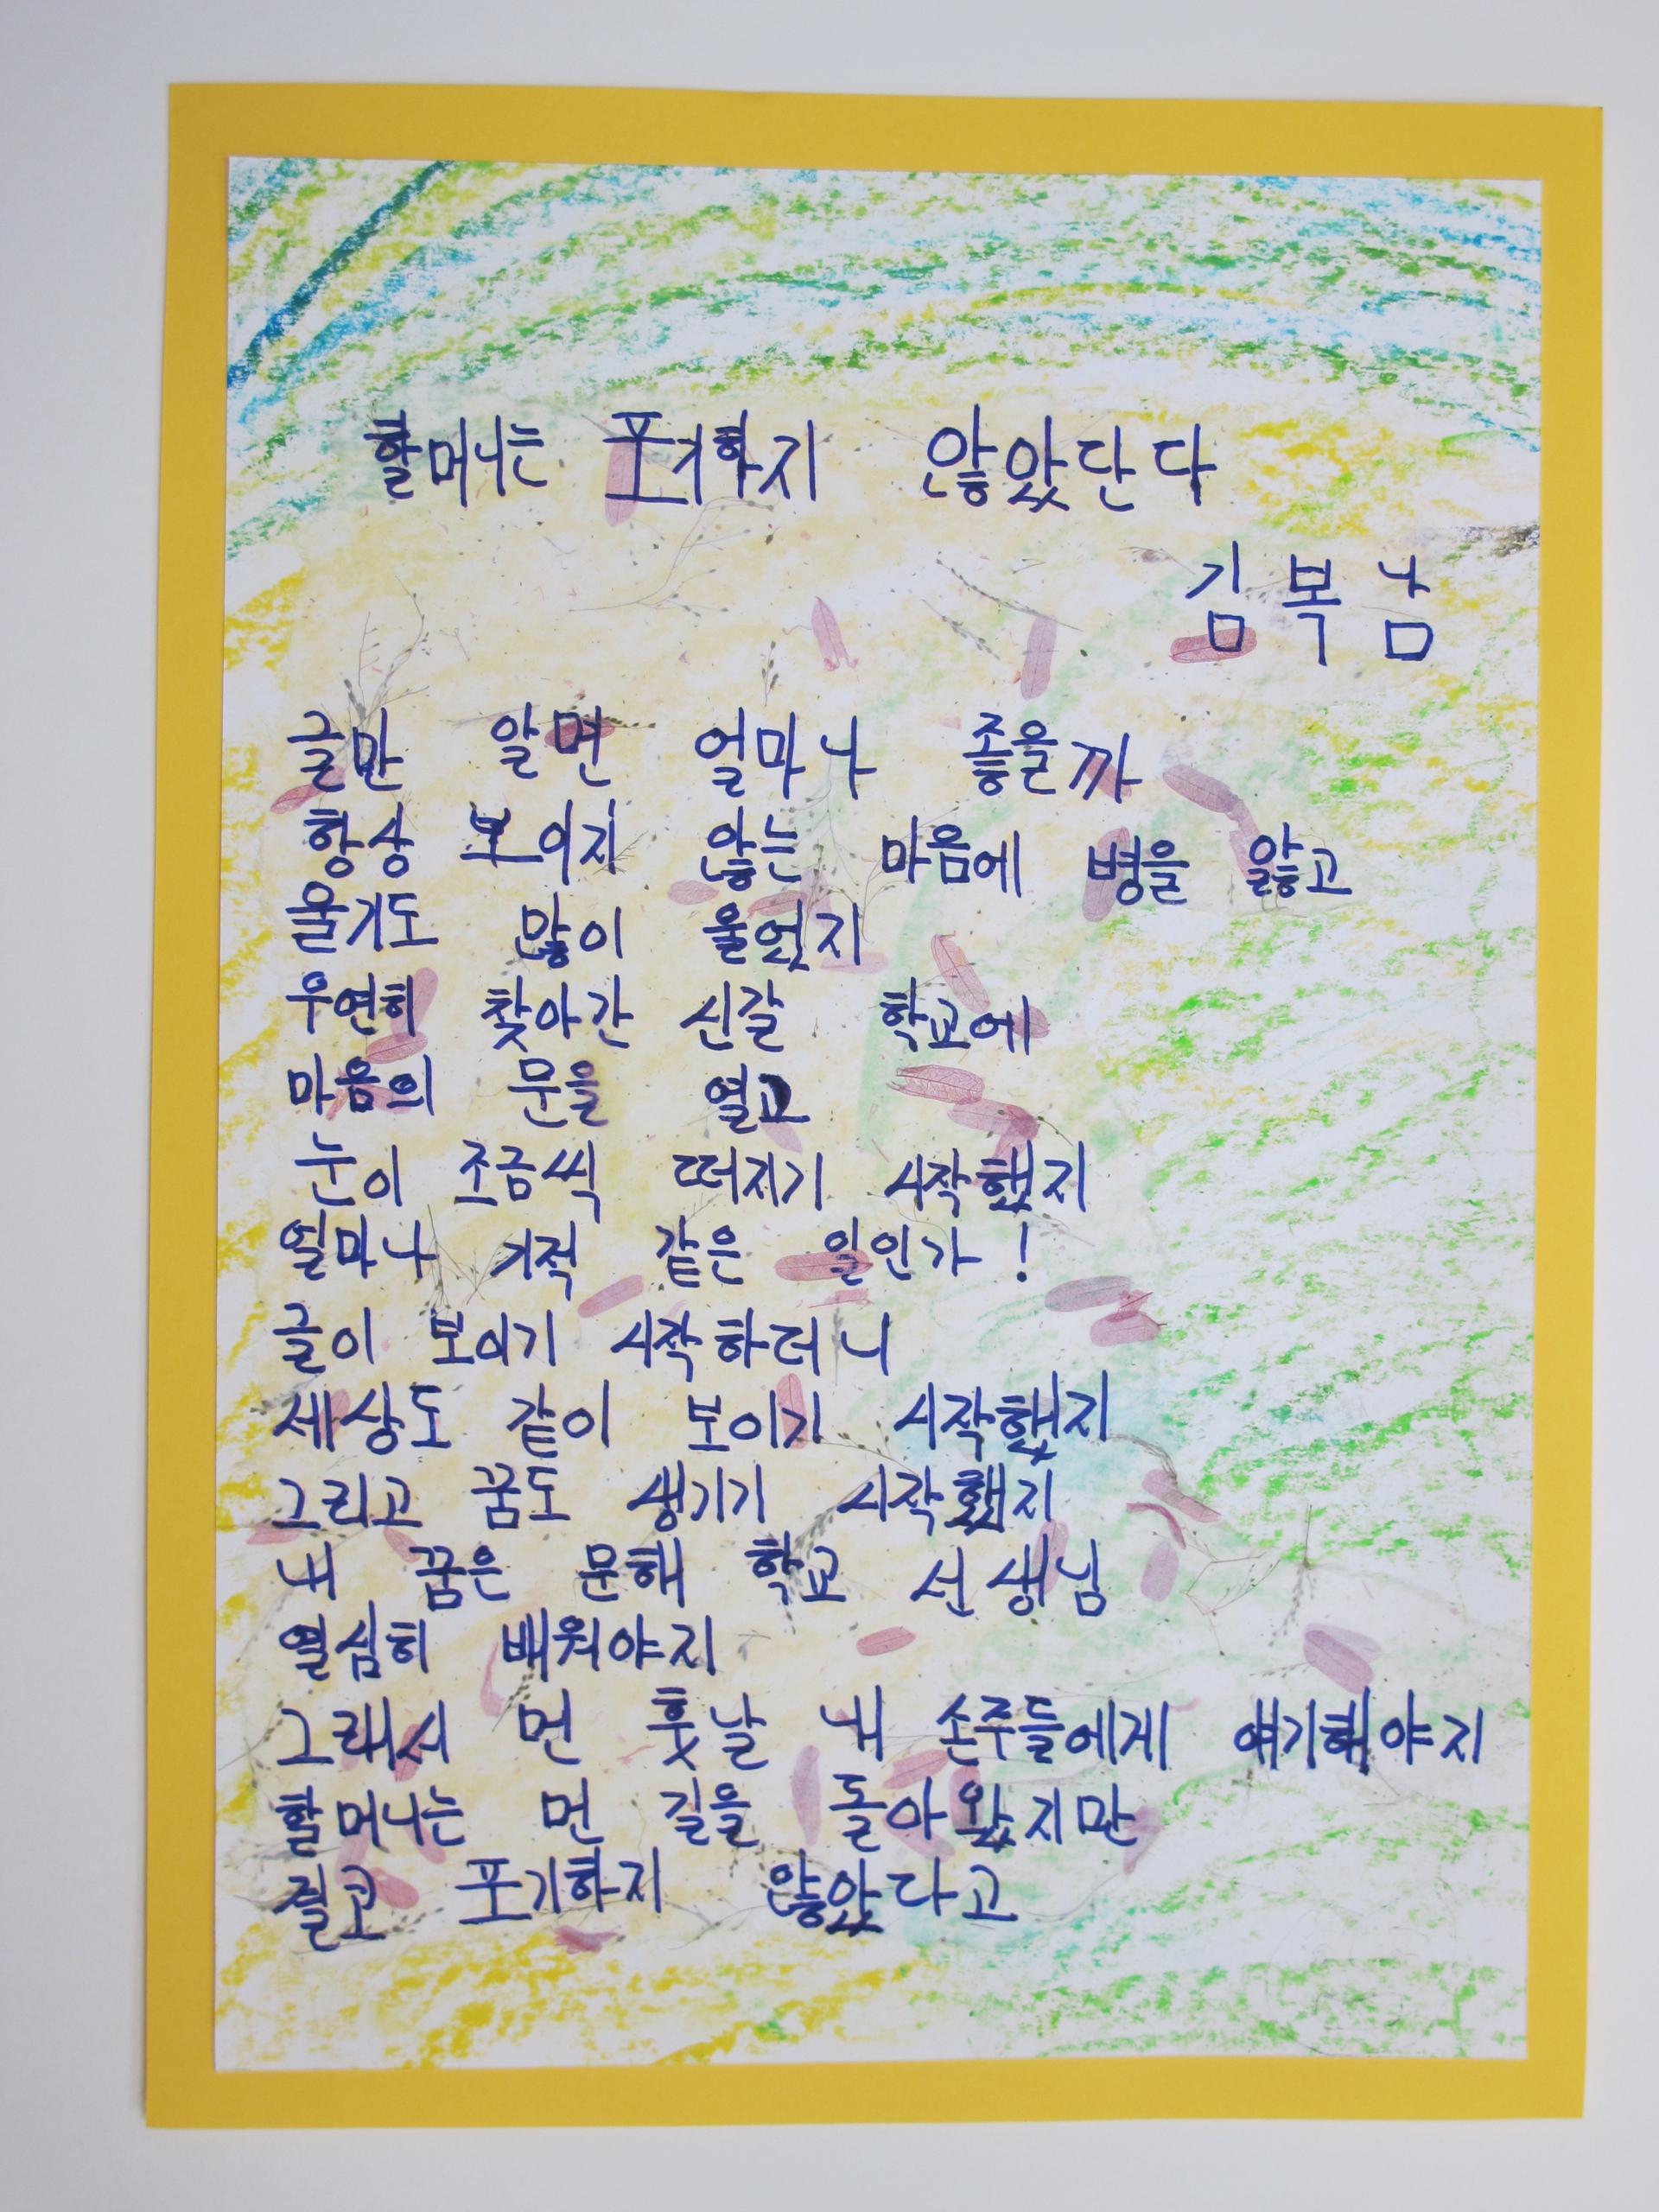 할머니는 포기하지 않았단다
김복남
글만 알면 얼마나 좋을까
항상 보이지 않는 마음에 병을 앓고
울기도 많이 울었지
우연히 찾아간 신갈 학교에
마음의 문을 열고
눈이 조금씩 떠지기 시작했지
얼마나 기적 같은 일인가!
글이 보이기 시작하더니
세상도 같이 보이기 시작했지
그리고 꿈도 생기기 시작했지
내 꿈은 문해 학교 선생님
열심히 배워야지
그래서 먼 훗날 내 손주들에게 얘기해야지
할머니는 먼 길을 돌아왔지만
절코 포기하지 않았다고